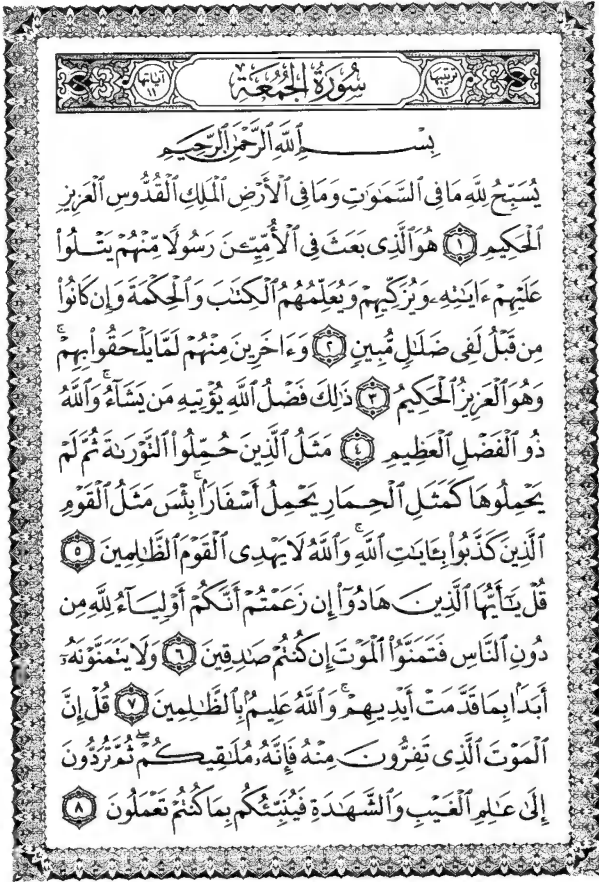 ترتيبها ٦٢ سُورَةُ الجُمُعَةِ آياتها ١١
بِسْمِ ٱللَّهِ ٱلرَّحْمَٰنِ ٱلرَّحِيمِ
يُسَبِّحُ لِلَّهِ مَا فِي ٱلسَّمَٰوَٰتِ وَمَا فِي ٱلْأَرْضِ ٱلْمَلِكِ ٱلْقُدُّوسِ ٱلْعَزِيزِ
ٱلْحَكِيمِ ١ هُوَ ٱلَّذِي بَعَثَ فِي ٱلْأُمِّيِّـۧنَ رَسُولًا مِّنْهُمْ يَتْلُوا۟
عَلَيْهِمْ ءَايَٰتِهِۦ وَيُزَكِّيهِمْ وَيُعَلِّمُهُمُ ٱلْكِتَٰبَ وَٱلْحِكْمَةَ وَإِن كَانُوا۟
مِن قَبْلُ لَفِي ضَلَٰلٍ مُّبِينٍ ٢ وَءَاخَرِينَ مِنْهُمْ لَمَّا يَلْحَقُوا۟ بِهِمْ ۚ
وَهُوَ ٱلْعَزِيزُ ٱلْحَكِيمُ ٣ ذَٰلِكَ فَضْلُ ٱللَّهِ يُؤْتِيهِ مَن يَشَآءُ ۚ وَٱللَّهُ
ذُو ٱلْفَضْلِ ٱلْعَظِيمِ ٤ مَثَلُ ٱلَّذِينَ حُمِّلُوا۟ ٱلتَّوْرَىٰةَ ثُمَّ لَمْ
يَحْمِلُوهَا كَمَثَلِ ٱلْحِمَارِ يَحْمِلُ أَسْفَارًۢا ۚ بِئْسَ مَثَلُ ٱلْقَوْمِ
ٱلَّذِينَ كَذَّبُوا۟ بِـَٔايَٰتِ ٱللَّهِ ۚ وَٱللَّهُ لَا يَهْدِي ٱلْقَوْمَ ٱلظَّٰلِمِينَ ٥
قُلْ يَٰٓأَيُّهَا ٱلَّذِينَ هَادُوٓا۟ إِن زَعَمْتُمْ أَنَّكُمْ أَوْلِيَآءُ لِلَّهِ مِن
دُونِ ٱلنَّاسِ فَتَمَنَّوُا۟ ٱلْمَوْتَ إِن كُنتُمْ صَٰدِقِينَ ٦ وَلَا يَتَمَنَّوْنَهُۥٓ
أَبَدًۢا بِمَا قَدَّمَتْ أَيْدِيهِمْ ۚ وَٱللَّهُ عَلِيمٌۢ بِٱلظَّٰلِمِينَ ٧ قُلْ إِنَّ
ٱلْمَوْتَ ٱلَّذِي تَفِرُّونَ مِنْهُ فَإِنَّهُۥ مُلَٰقِيكُمْ ۖ ثُمَّ تُرَدُّونَ
إِلَىٰ عَٰلِمِ ٱلْغَيْبِ وَٱلشَّهَٰدَةِ فَيُنَبِّئُكُم بِمَا كُنتُمْ تَعْمَلُونَ ٨